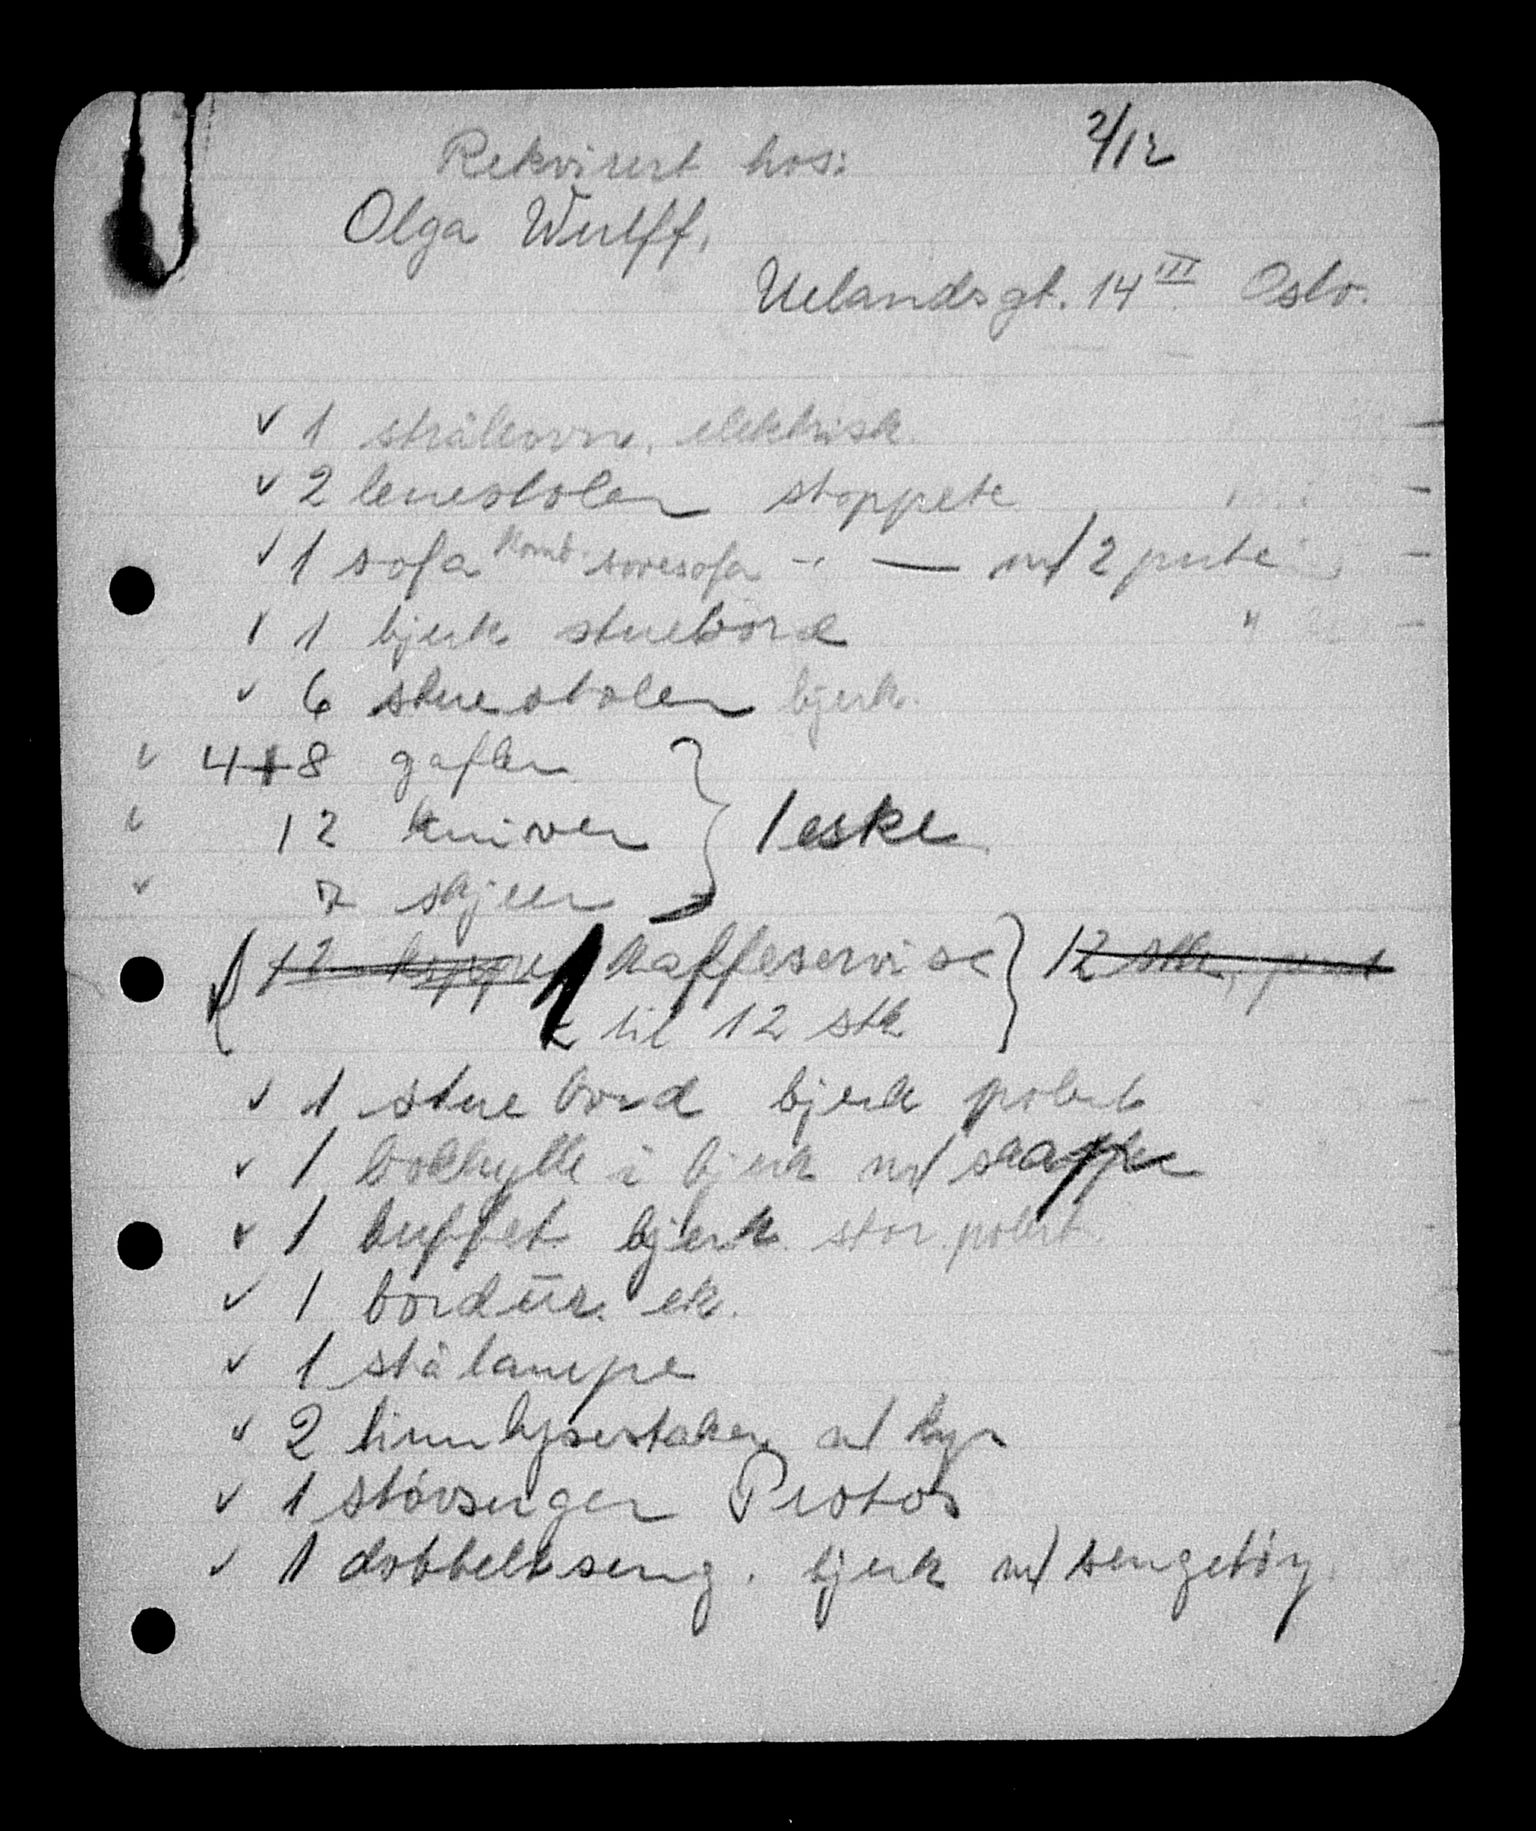 2/12
Rekvirert hos:
Olga Wulff,
Uelandsgt. 14 III Oslo.
✓ 1 strålovn, elektrisk
✓ 2 lenestoler stoppete
✓ 1 sofa komb. sovesofa -"- — m/ 2 pute
✓ 1 bjerk stuebord "
✓ 6 stuestoler bjerk.
✓ 4+8 gafler
✓ 12 kniver } 1 eske
✓ 7 skjeer
{ 12 kopper 1 kaffeservise } 12 stk.
til 12 stk
✓ 1 stuebord bjerk polert
✓ 1 bokhylle i bjerk m/ skaffer
✓ 1 buffet bjerk stor. polert.
✓ 1 bordur. ek.
✓ 1 stålampe
✓ 2 tinnlysestaker m/ lys
✓ 1 støvsuger Protos
✓ 1 dobbeltseng. bjerk m/ sengetøy